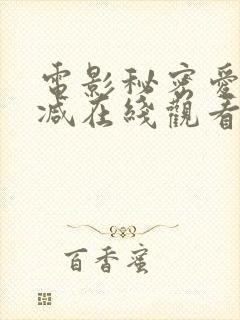 電影秘密愛
減在綫觀看
百香蜜